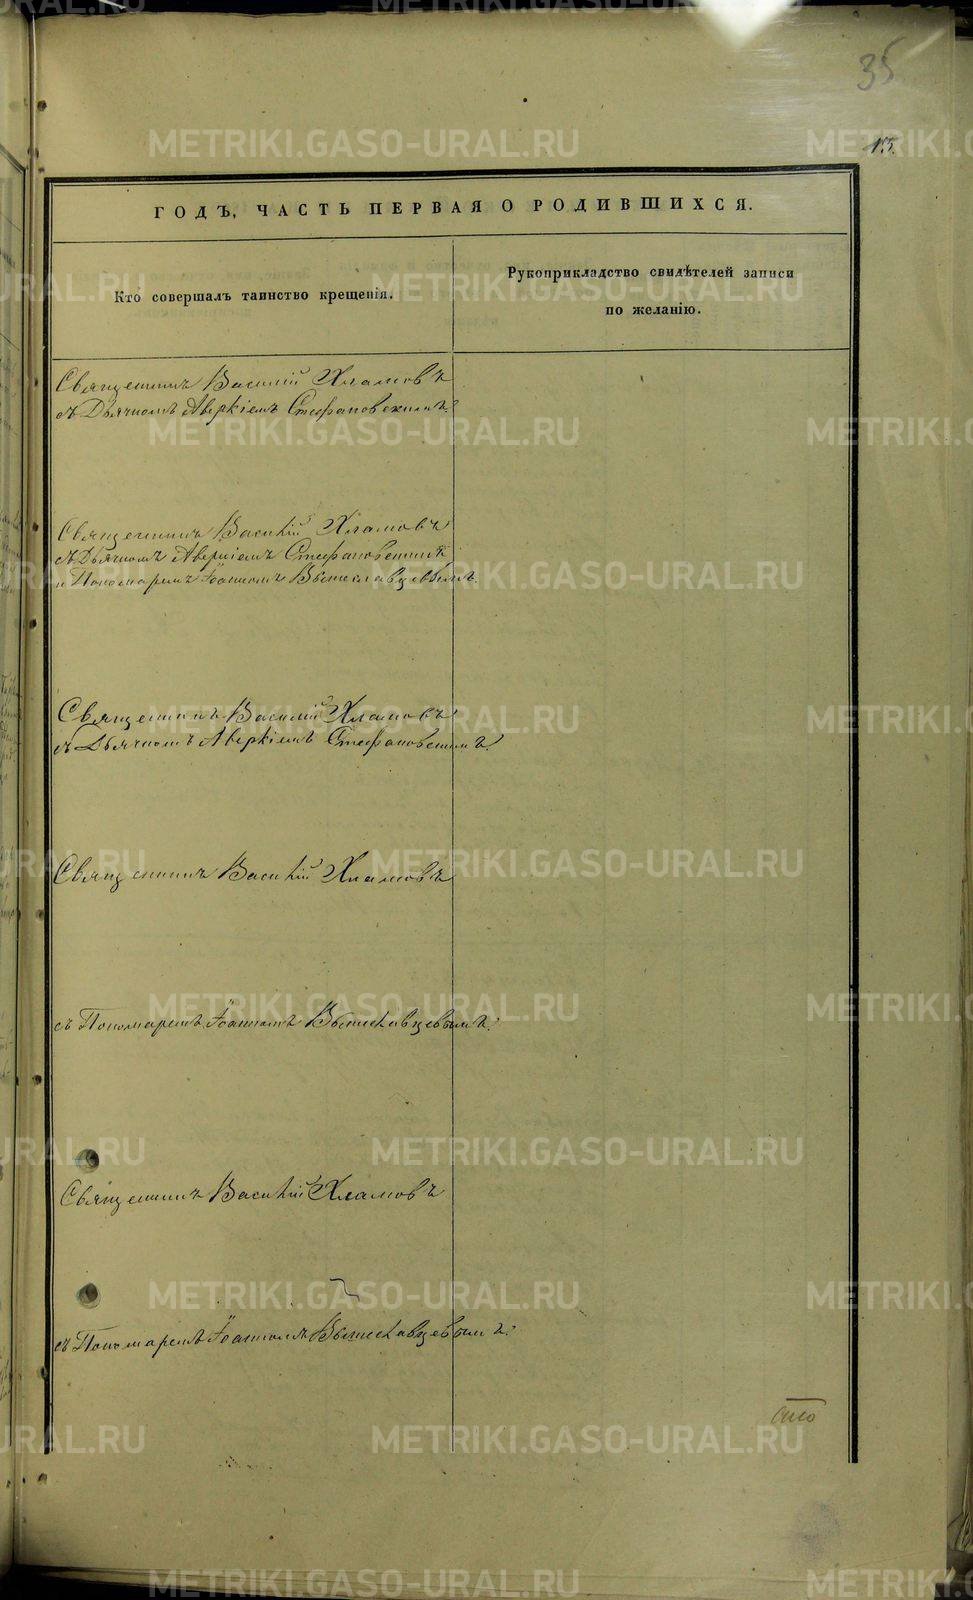 35
15.
ГОДЪ, ЧАСТЬ ПЕРВАЯ О РОДИВШИХСЯ.
Кто совершалъ таинство крещенія.
Рукоприкладство свидѣтелей записи
по желанію.
Священникъ Василій Хламовъ
съ Дьячкомъ Аверкіемъ Стефановскимъ.
Священникъ Василій Хламовъ
съ Дьячкомъ Аверкіемъ Стефановскимъ
и Пономаремъ Іоанномъ Вышеславцевымъ.
Священникъ Василій Хламовъ
съ Дьячкомъ Аверкіемъ Стефановскимъ.
Священникъ Василій Хламовъ
съ Пономаремъ Іоанномъ Вышеславцевымъ.
Священникъ Василій Хламовъ
съ Пономаремъ Іоанномъ Вышеславцевымъ.
METRIKI.GASO-URAL.RU